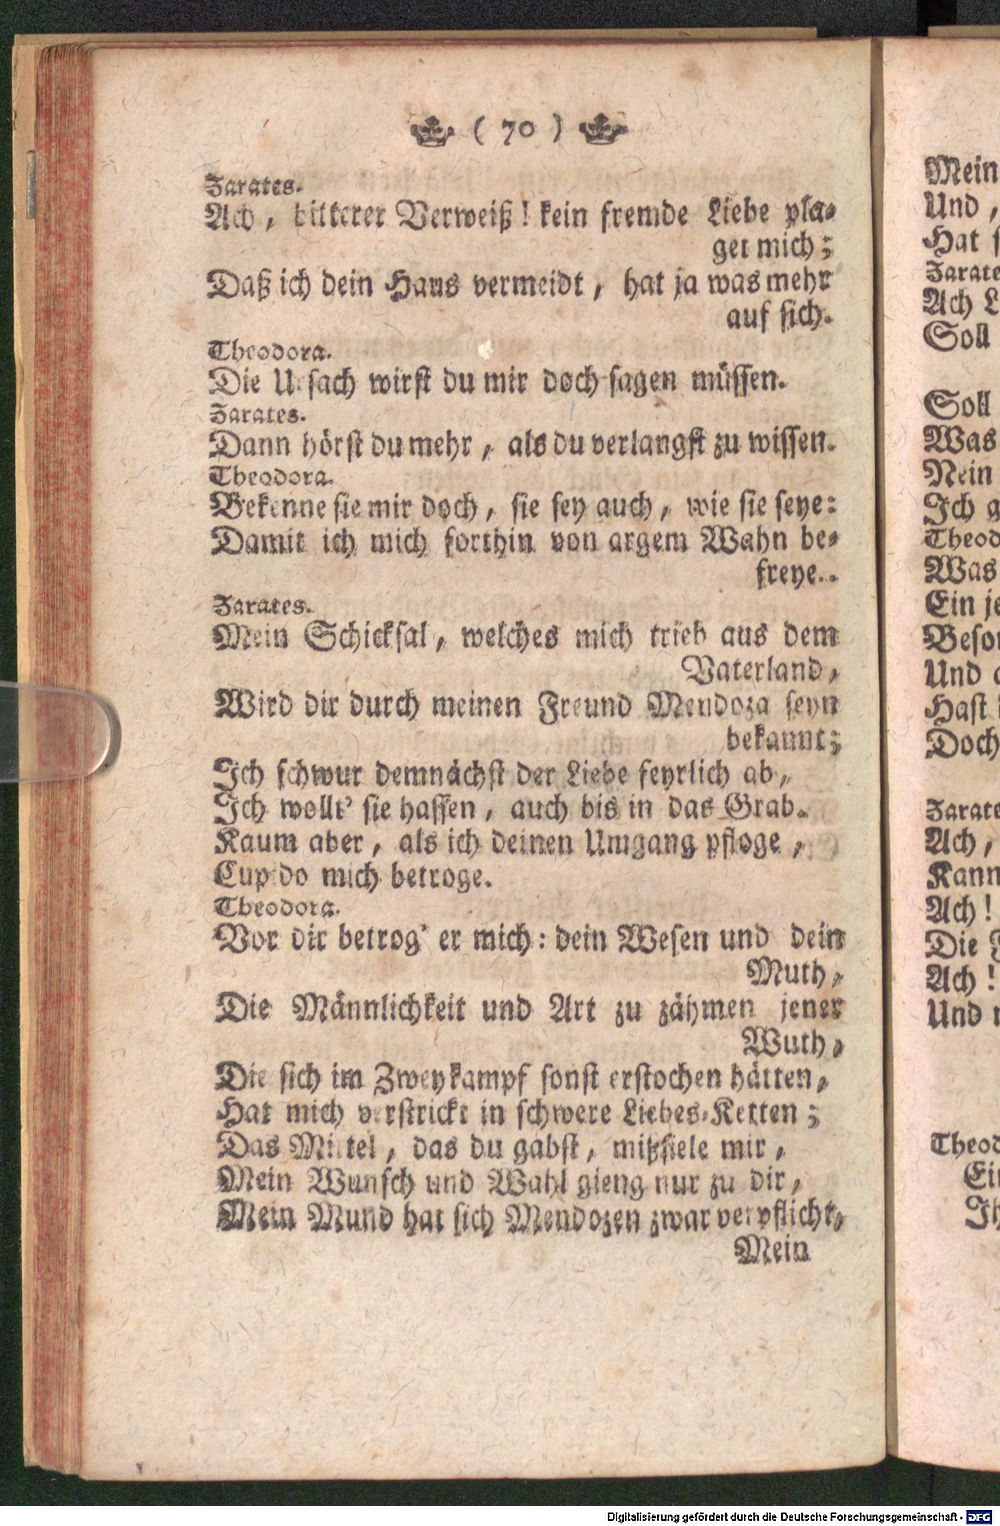 ( 70 )
Zarates.
Ach, bitterer Verweiß! kein fremde Liebe pla-
get mich;
Daß ich dein Haus vermeidt, hat ja was mehr
auf sich.
Theodora.
Die Ursach wirst du mir doch sagen müssen.
Zarates.
Dann hörst du mehr, als du verlangst zu wissen.
Theodora.
Bekenne sie mir doch, sie sey auch, wie sie seye:
Damit ich mich forthin von argem Wahn be-
freye..
Zarates.
Mein Schicksal, welches mich trieb aus dem
Vaterland,
Wird dir durch meinen Freund Mendoza seyn
bekannt;
Ich schwur demnächst der Liebe feyrlich ab,
Ich wollt' sie hassen, auch bis in das Grab.
Kaum aber, als ich deinen Umgang pfloge,
Cupido mich betroge.
Theodora.
Vor dir betrog' er mich: dein Wesen und dein
Muth,
Die Männlichkeit und Art zu zähmen jener
Wuth,
Die sich im Zweykampf sonst erstochen hätten,
Hat mich verstrickt in schwere Liebes-Ketten;
Das Mittel, das du gabst, mißfiele mir,
Mein Wunsch und Wahl gieng nur zu dir,
Mein Mund hat sich Mendozen zwar verpflicht,
Mein
Mein
Und,
Hat
Zarate
Ach
Soll
Soll
Was
Nein
Ich
Theod
Was
Ein je
Beson
Und
Hast
Doch
Zarate
Ach,
Kann
Ach!
Die
Ach!
Und
Theod
Ein
Ih
Digitalisierung gefördert durch die Deutsche Forschungsgemeinschaft - DFG